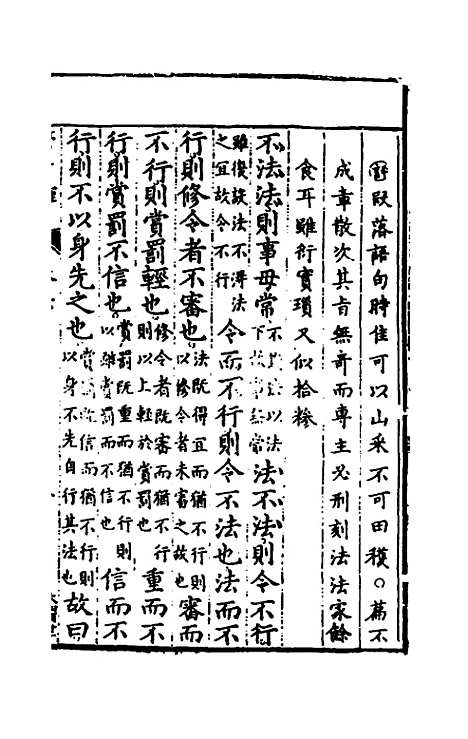 段落語句時佳可以山采不可田穫○篇不
成章散次其旨無奇而專主必刑刻法法家餘
食耳雖衍實瑣又似拾糝
不法法則事毋常不以法下事無常法不法則令不行
雖復設法不得法之宜故令不行令而不行則令不法也法而不
行則修令者不審也法既得宜而猶不行則以修令者未審之故也審而
不行則賞罰輕也修令者既審而猶不行則以上輕於賞罰也重而不
行則賞罰不信也賞罰既重而猶不行則以雖賞罰而不信也信而不
行則不以身先之也賞罰既信而猶不行則以身不先自行其法也故曰